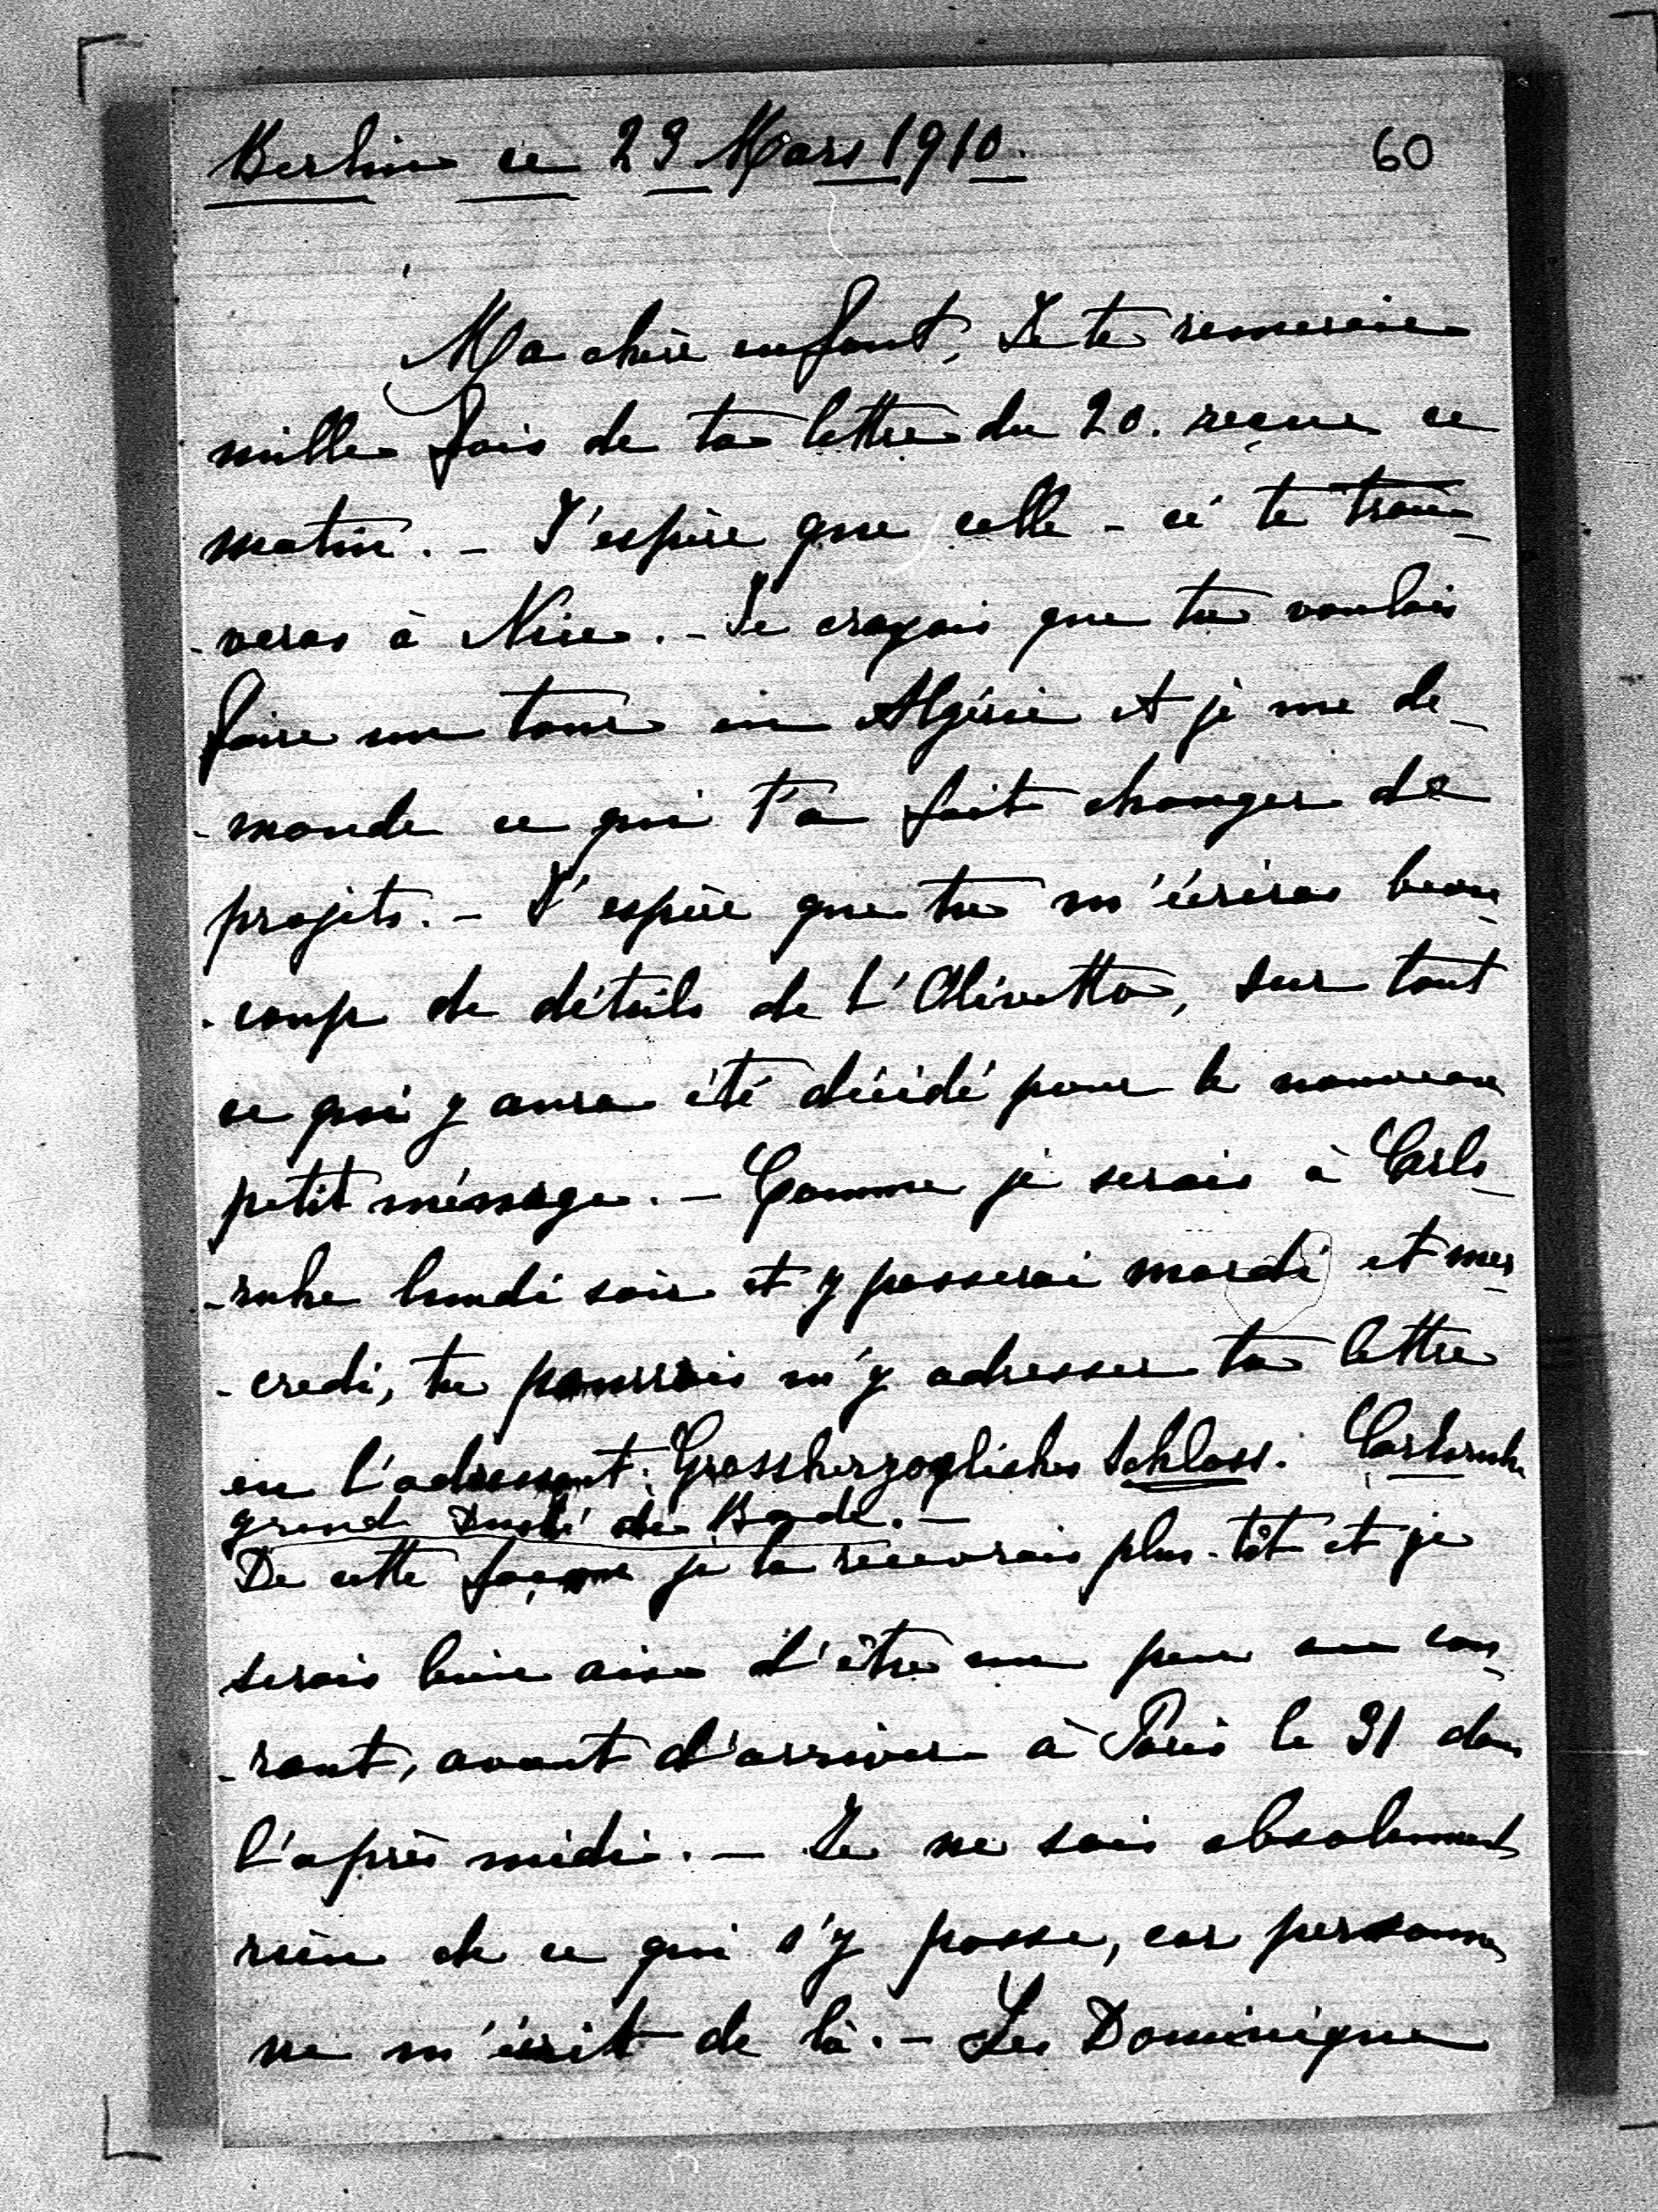 Berlin ce 23 Mars 1910.
60
Ma chère enfant, Je te remercie
mille fois de ta lettre du 20. reçue ce
matin. - J'espère que celle-ci te trou-
-veras à Nice. - Je croyais que tu voulais
faire un tour en Algérie et je me de-
-mande ce qui t'a fait changer de
projets. - J'espère que tu m'écriras beau-
-coup de détails de l'Olivetto, sur tout
ce qui y aura été décidé pour le nouveau
petit ménage. - Comme je serais à Carls-
-ruhe lundi soir et y passerai mardi et mer-
-credi, tu pourrais m'y adresser ta lettre
en l'adressant: Grossherzogliches Schloss. Carlsruhe
grand Duché de Bade. -
De cette façon je la recevrais plus-tôt et je
serais bien aise d'être un peu au cou-
-rant, avant d'arriver à Paris le 31 dans
l'après midi. - Je ne sais absolument
rien de ce qui s'y passe, car personne
ne m'écrit de là. - Les Dominique